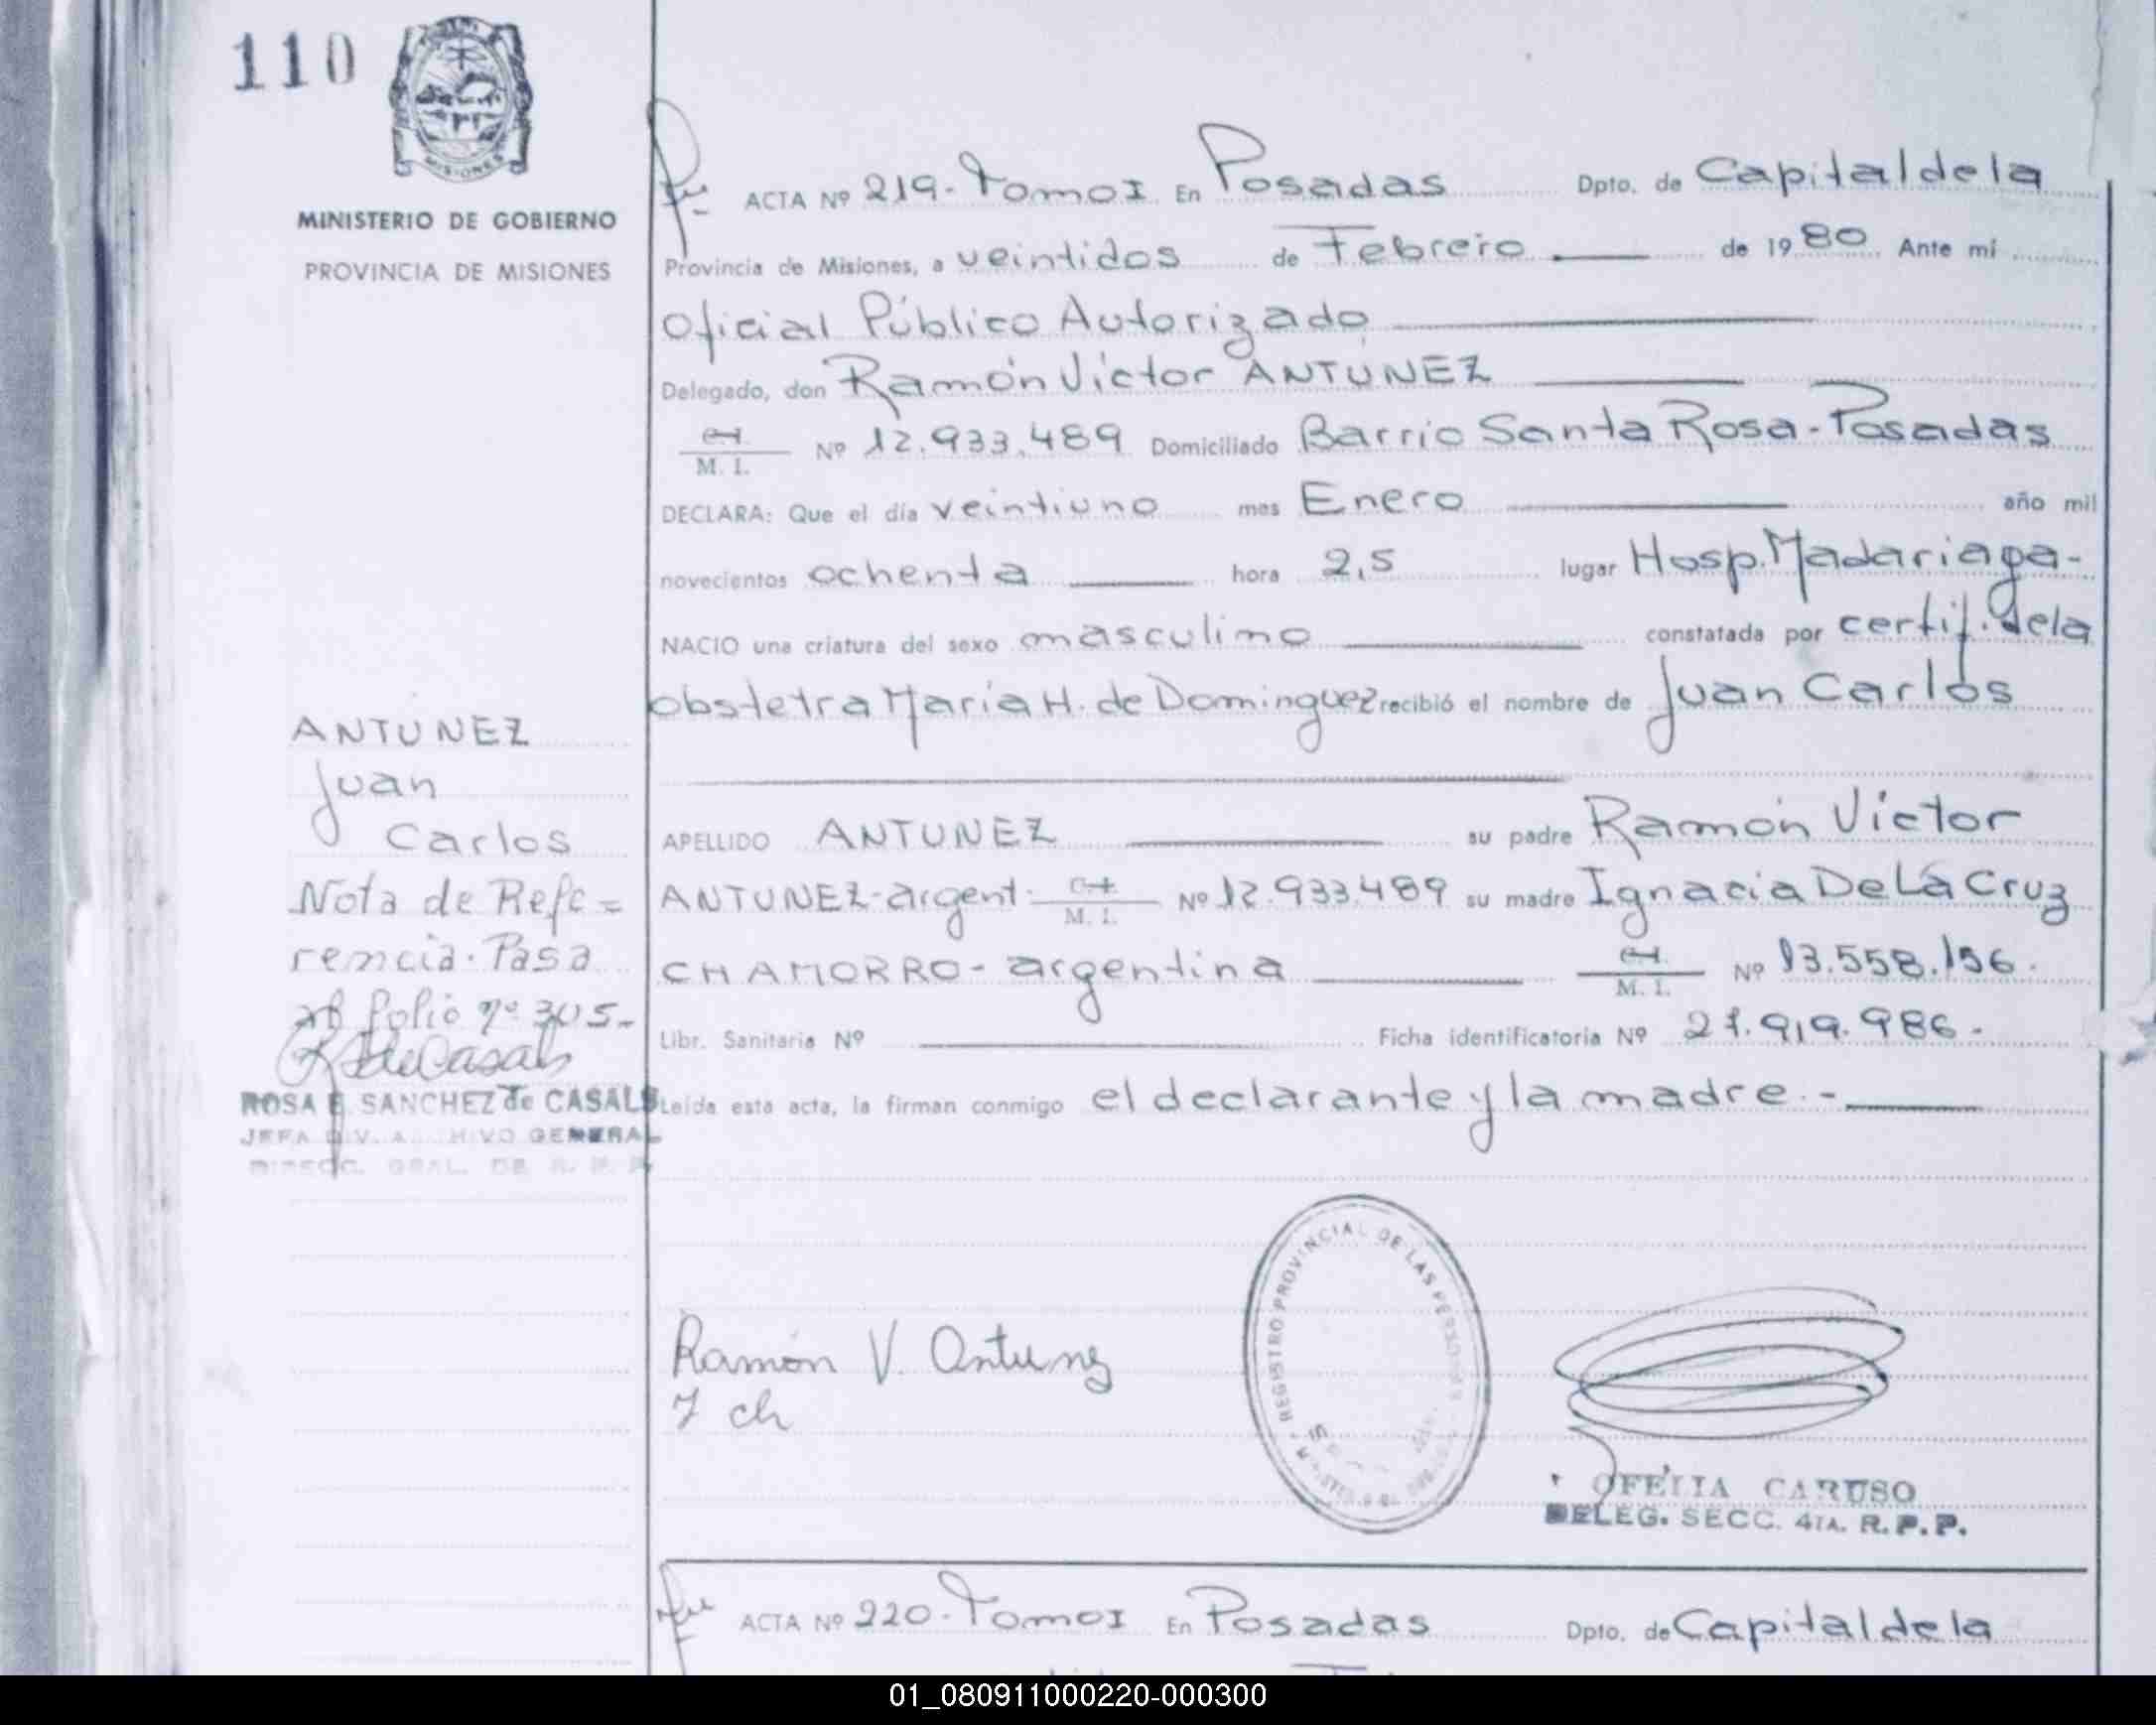 110
MISIONES
MINISTERIO DE GOBIERNO
PROVINCIA DE MISIONES
ACTA Nº 219-Tomo I En Posadas Dpto. de Capital de la
Provincia de Misiones, a veintidos de Febrero de 1980. Ante mí
Oficial Público Autorizado
Delegado, don Ramón Victor ANTUNEZ
M. I. Nº 12.933.489 Domiciliado Barrio Santa Rosa-Posadas
DECLARA: Que el día veintiuno mes Enero año mil
novecientos ochenta hora 2,5 lugar Hosp. Madariaga-
NACIO una criatura del sexo masculino constatada por certif. de la
obstetra María H. de Dominguez recibió el nombre de Juan Carlos
APELLIDO ANTUNEZ su padre Ramón Victor
ANTUNEZ-argent. M. I. Nº 12.933.489 su madre Ignacia De La Cruz
CHAMORRO-argentina M. I. Nº 13.558.156.
Libr. Sanitaria Nº Ficha identificatoria Nº 27.919.986.
Leída esta acta, la firman conmigo el declarante y la madre.-
ANTUNEZ
Juan
Carlos
Nota de Refe=
rencia. Pasa
al folio nº 305-
ROSA E. SANCHEZ de CASALS
JEFA DIV. ARCHIVO GENERAL
DIRECC. GRAL. DE R. P. P.
Ramón V. Antunez
I ch
REGISTRO PROVINCIAL DE LAS PERSONAS
OFELIA CARUSO
DELEG. SECC. 4TA. R.P.P.
ACTA Nº 220-Tomo I En Posadas Dpto. de Capital de la
01_080911000220-000300